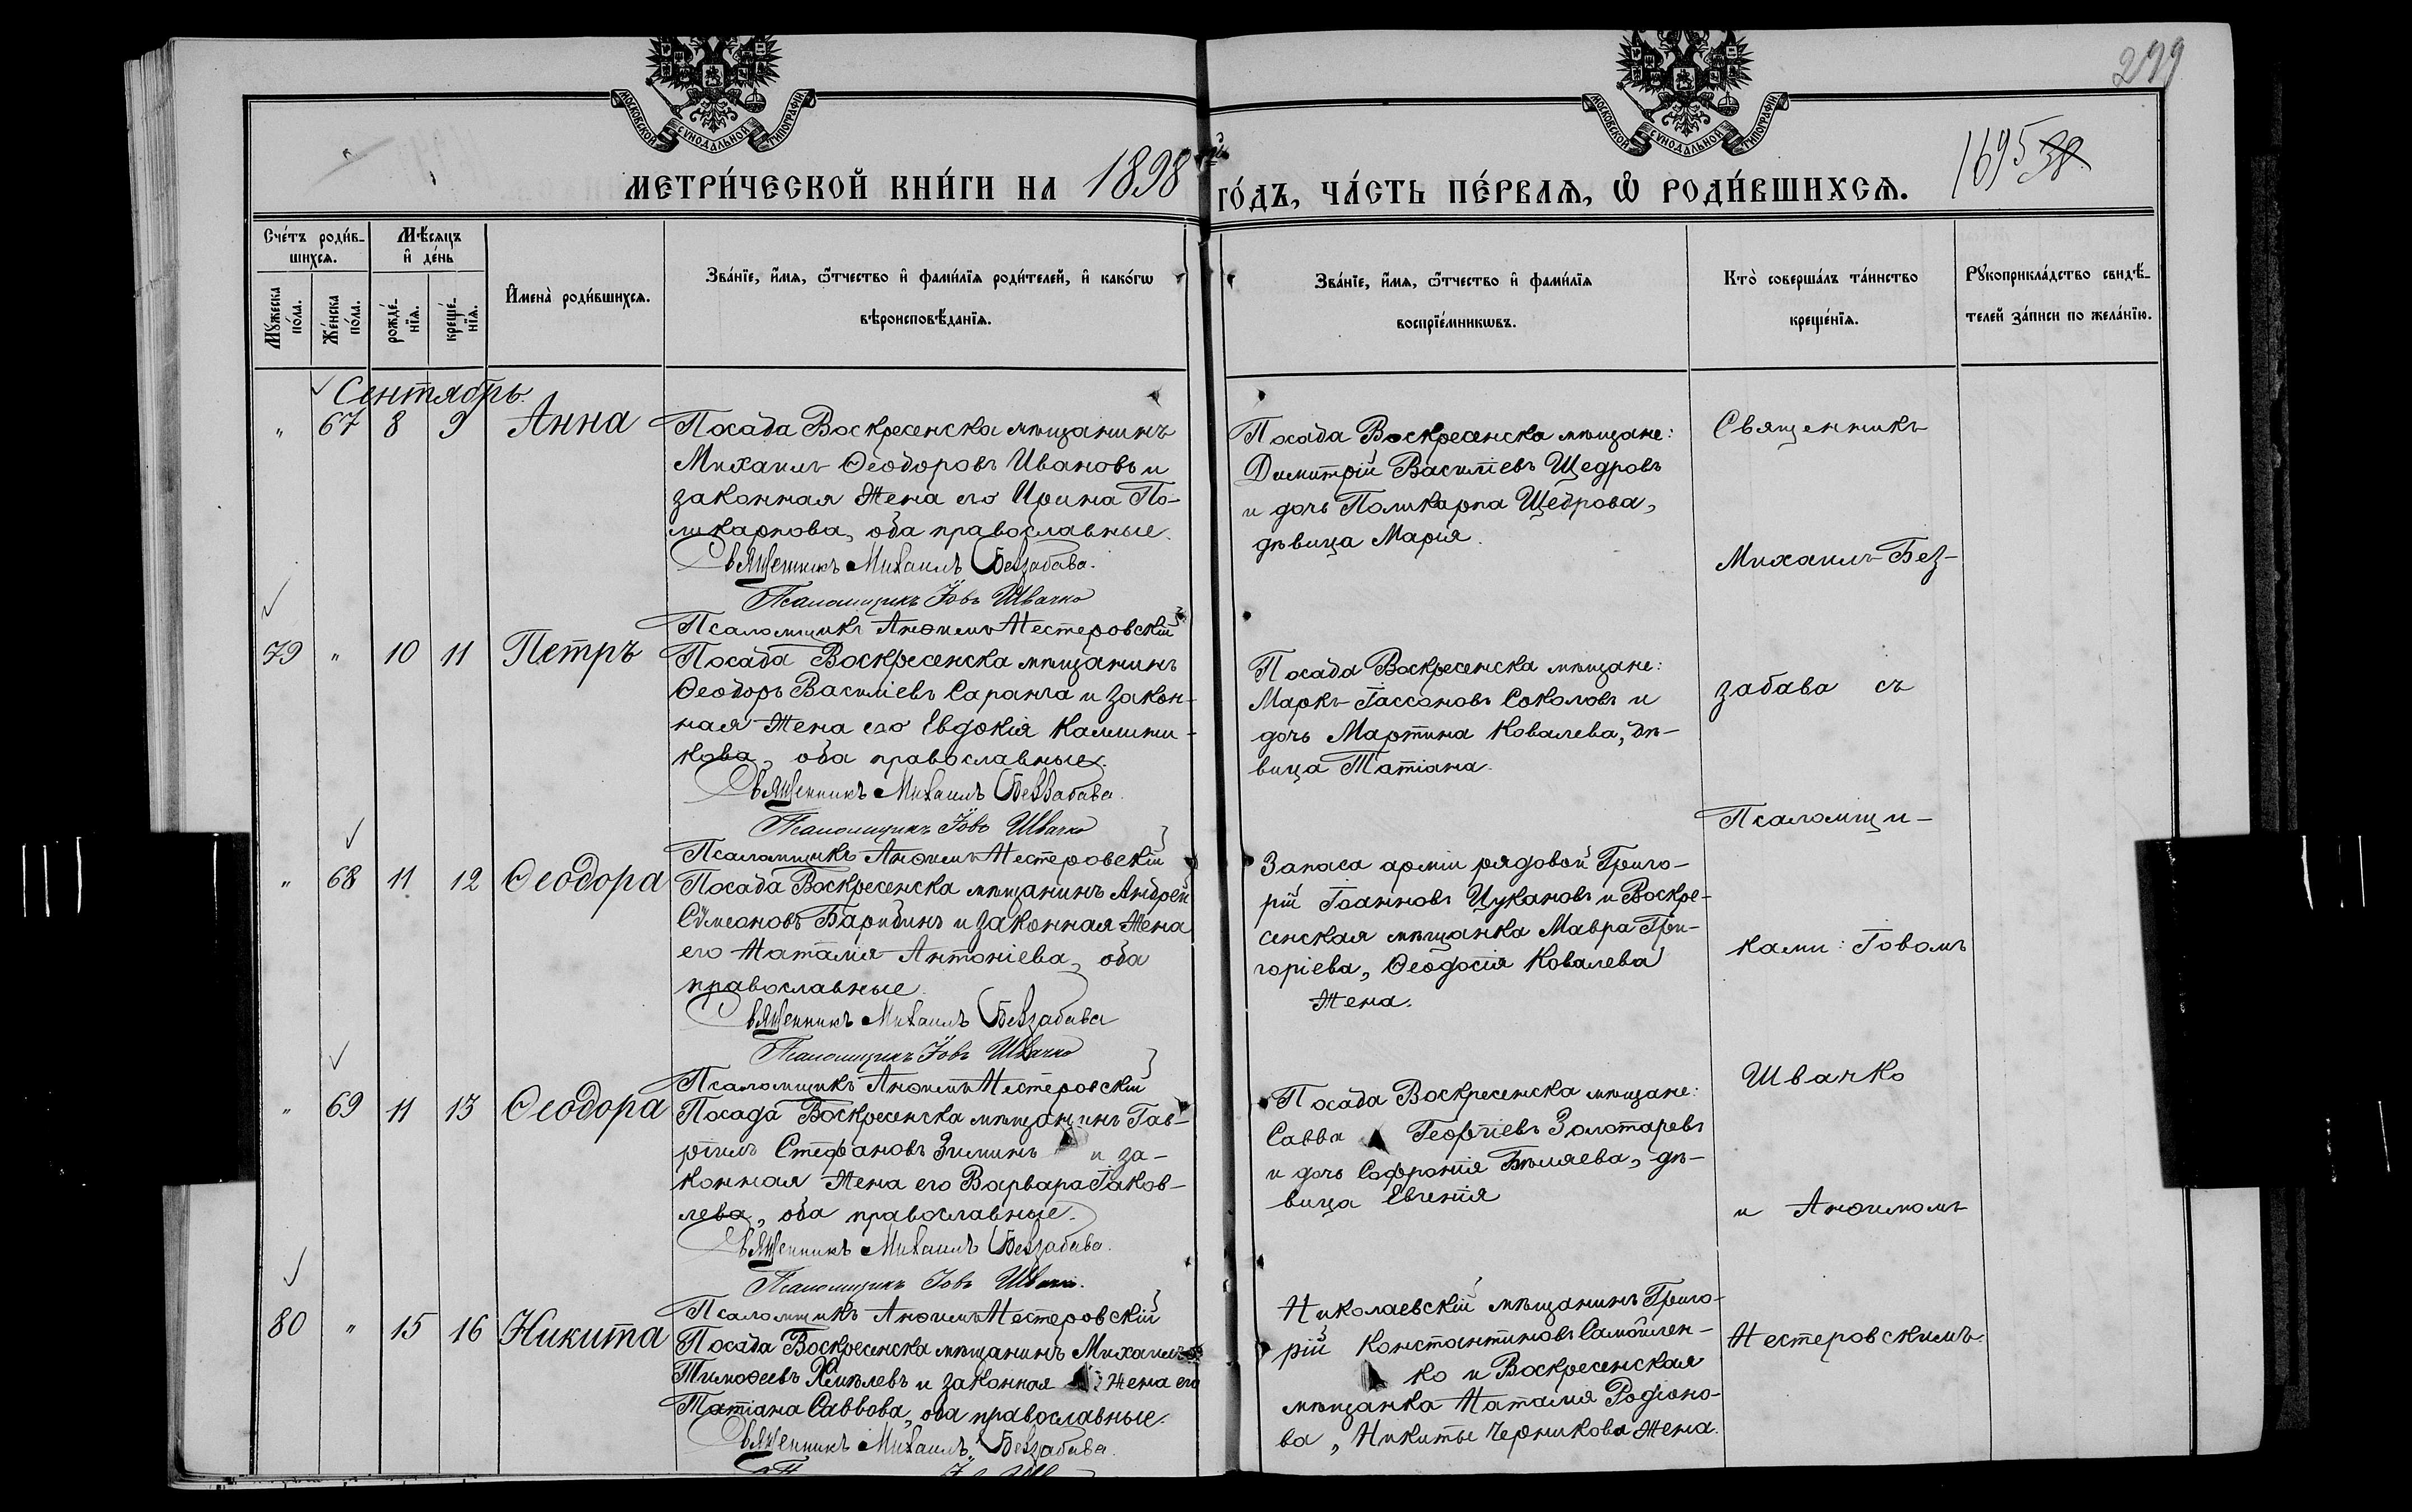 299
МОСКОВСКОЙ СѴНОДАЛЬНОЙ ТИПОГРАФІИ
МОСКОВСКОЙ СѴНОДАЛЬНОЙ ТИПОГРАФІИ
МЕТРИ́ЧЕСКОЙ КНИ́ГИ НА 1898 ГО́ДЪ, ЧА́СТЬ ПЕ́РВАѦ, Ѽ РОДИ́ВШИХСѦ.
1695 38
Сче́тъ роди́в-
шихсѧ.
Мѣ́сѧцъ
и҆ де́нь
Мꙋ́жеска
по́ла.
Же́нска
по́ла.
рожде́-
нїѧ.
креще́-
нїѧ.
И҆мена̀ роди́вшихсѧ.
Зва́нїе, и҆́мѧ, ѻ҆́тчество и҆ фами́лїѧ роди́телей, и҆ како́гѡ
вѣроисповѣ́данїѧ.
Зва́нїе, и҆́мѧ, ѻ҆́тчество и҆ фами́лїѧ
воспрїе́мникѡвъ.
Кто̀ соверша́лъ та́инство
креще́нїѧ.
Рꙋкоприкла́дство свидѣ́-
телей за́писи по жела́нїю.
Сентябрь.
" 67 8 9 Анна
Посада Воскресенска мѣщанинъ
Михаилъ Ѳеодоровъ Ивановъ и
законная жена его Ирина По-
ликарпова, оба православные.
Священникъ Михаилъ Беззабава.
Псаломщикъ Іовъ Швачко
Псаломщикъ Анѳимъ Нестеровскій
Посада Воскресенска мѣщане:
Димитрій Василіевъ Щедровъ
и дочь Поликарпа Щедрова,
дѣвица Марія.
79 " 10 11 Петръ
Посада Воскресенска мѣщанинъ
Ѳеодоръ Василіевъ Саранча и закон-
ная жена его Евдокія Каллини-
кова, оба православные.
Священникъ Михаилъ Беззабава.
Псаломщикъ Іовъ Швачко
Псаломщикъ Анѳимъ Нестеровскій
Посада Воскресенска мѣщане:
Маркъ Іассоновъ Соколовъ и
дочь Мартина Ковалева, дѣ-
вица Татіана.
" 68 11 12 Ѳеодора
Посада Воскресенска мѣщанинъ Андрей
Сѵмеоновъ Барыбинъ и законная жена
его Наталія Антоніева, оба
православные.
Священникъ Михаилъ Беззабава
Псаломщикъ Іовъ Швачко
Псаломщикъ Анѳимъ Нестеровскій
Запаса арміи рядовой Григо-
рій Іоанновъ Цукановъ и Воскре-
сенская мѣщанка Мавра Гри-
горіева, Ѳеодосія Ковалева
жена.
" 69 11 13 Ѳеодора
Посада Воскресенска мѣщанинъ Гав-
ріилъ Стефановъ Зиминъ и за-
конная жена его Варвара Іаков-
лева, оба православные.
Священникъ Михаилъ Беззабава.
Псаломщикъ Іовъ Швачко.
Псаломщикъ Анѳимъ Нестеровскій
Посада Воскресенска мѣщане:
Савва Георгіевъ Золотаревъ
и дочь Софронія Бѣляева, дѣ-
вица Евгенія
80 " 15 16 Никита
Посада Воскресенска мѣщанинъ Михаилъ
Тимоѳеевъ Хмѣлевъ и законная жена его
Татіана Саввова, оба православные.
Священникъ Михаилъ Беззабава.
Николаевскій мѣщанинъ Григо-
рій Константиновъ Самойлен-
ко и Воскресенская
мѣщанка Наталія Родіоно-
ва, Никиты Черникова жена.
Священникъ
Михаилъ Без-
забава съ
Псаломщи-
ками: Іовомъ
Швачко
и Анѳимомъ
Нестеровскимъ.